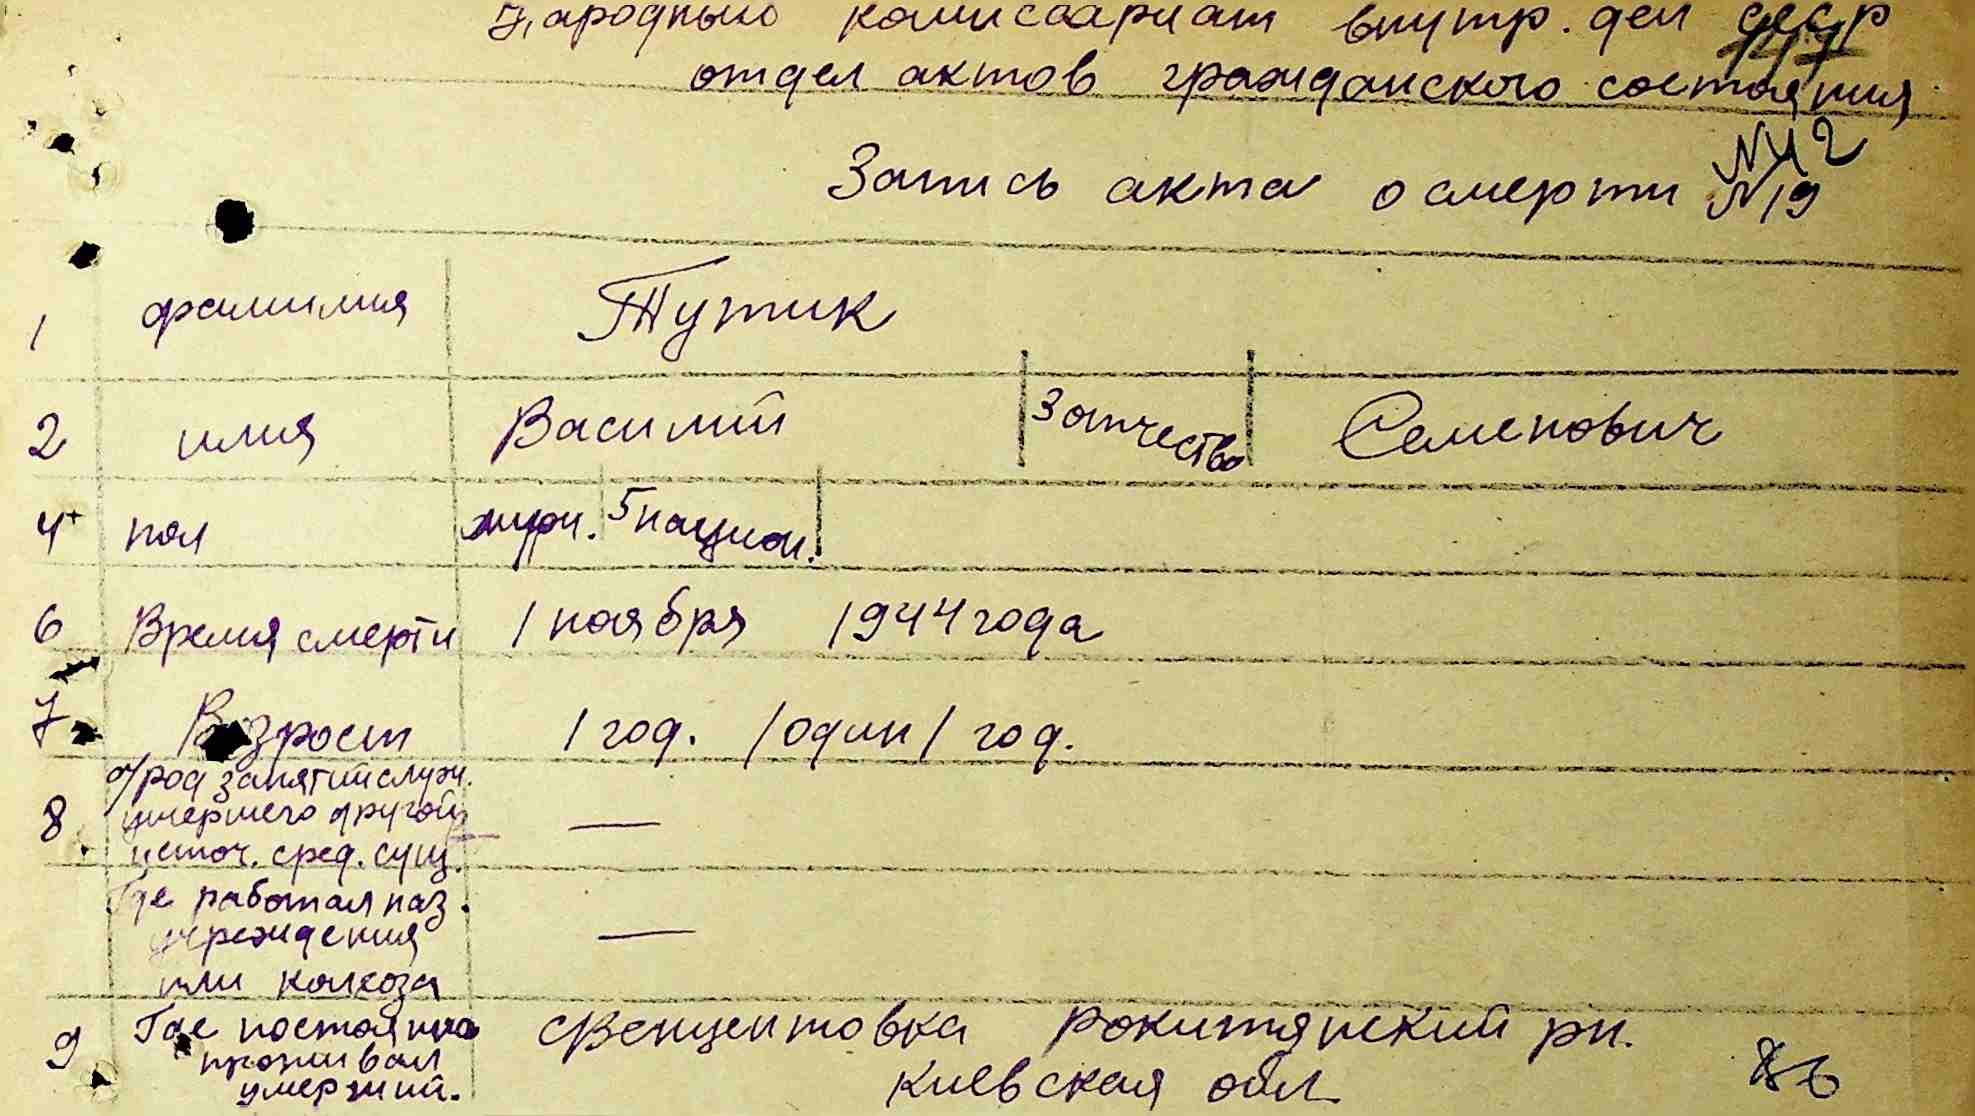 Народный комиссариат внутр. дел СССР
отдел актов гражданского состояния
№ 12
Запись акта о смерти № 19
1 фамилия Тутик
2 имя Василий 3 отчество Семенович
4 пол муж. 5 национ.
6 Время смерти 1 ноября 1944 года
7 Возраст 1 год. /один/ год.
а/род занятий служ.
8 умершего другой —
источ. сред. сущ.
Где работал наз.
учреждения —
или колхоза
9 Где постоянно Свенцентовка Рокитянский рн.
проживал Киевская обл.
умерший.